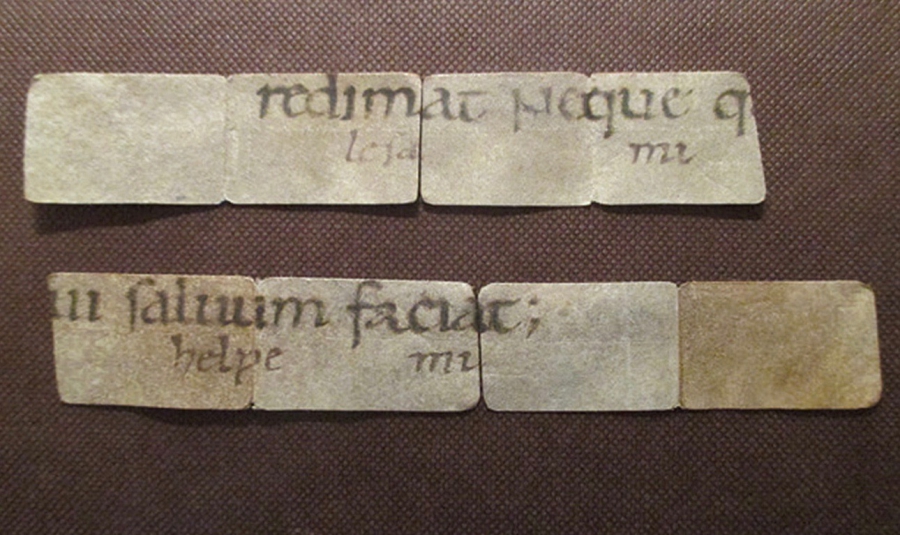 redimat Neque q
lesa mi
ui saluum faciat;
helpe mi